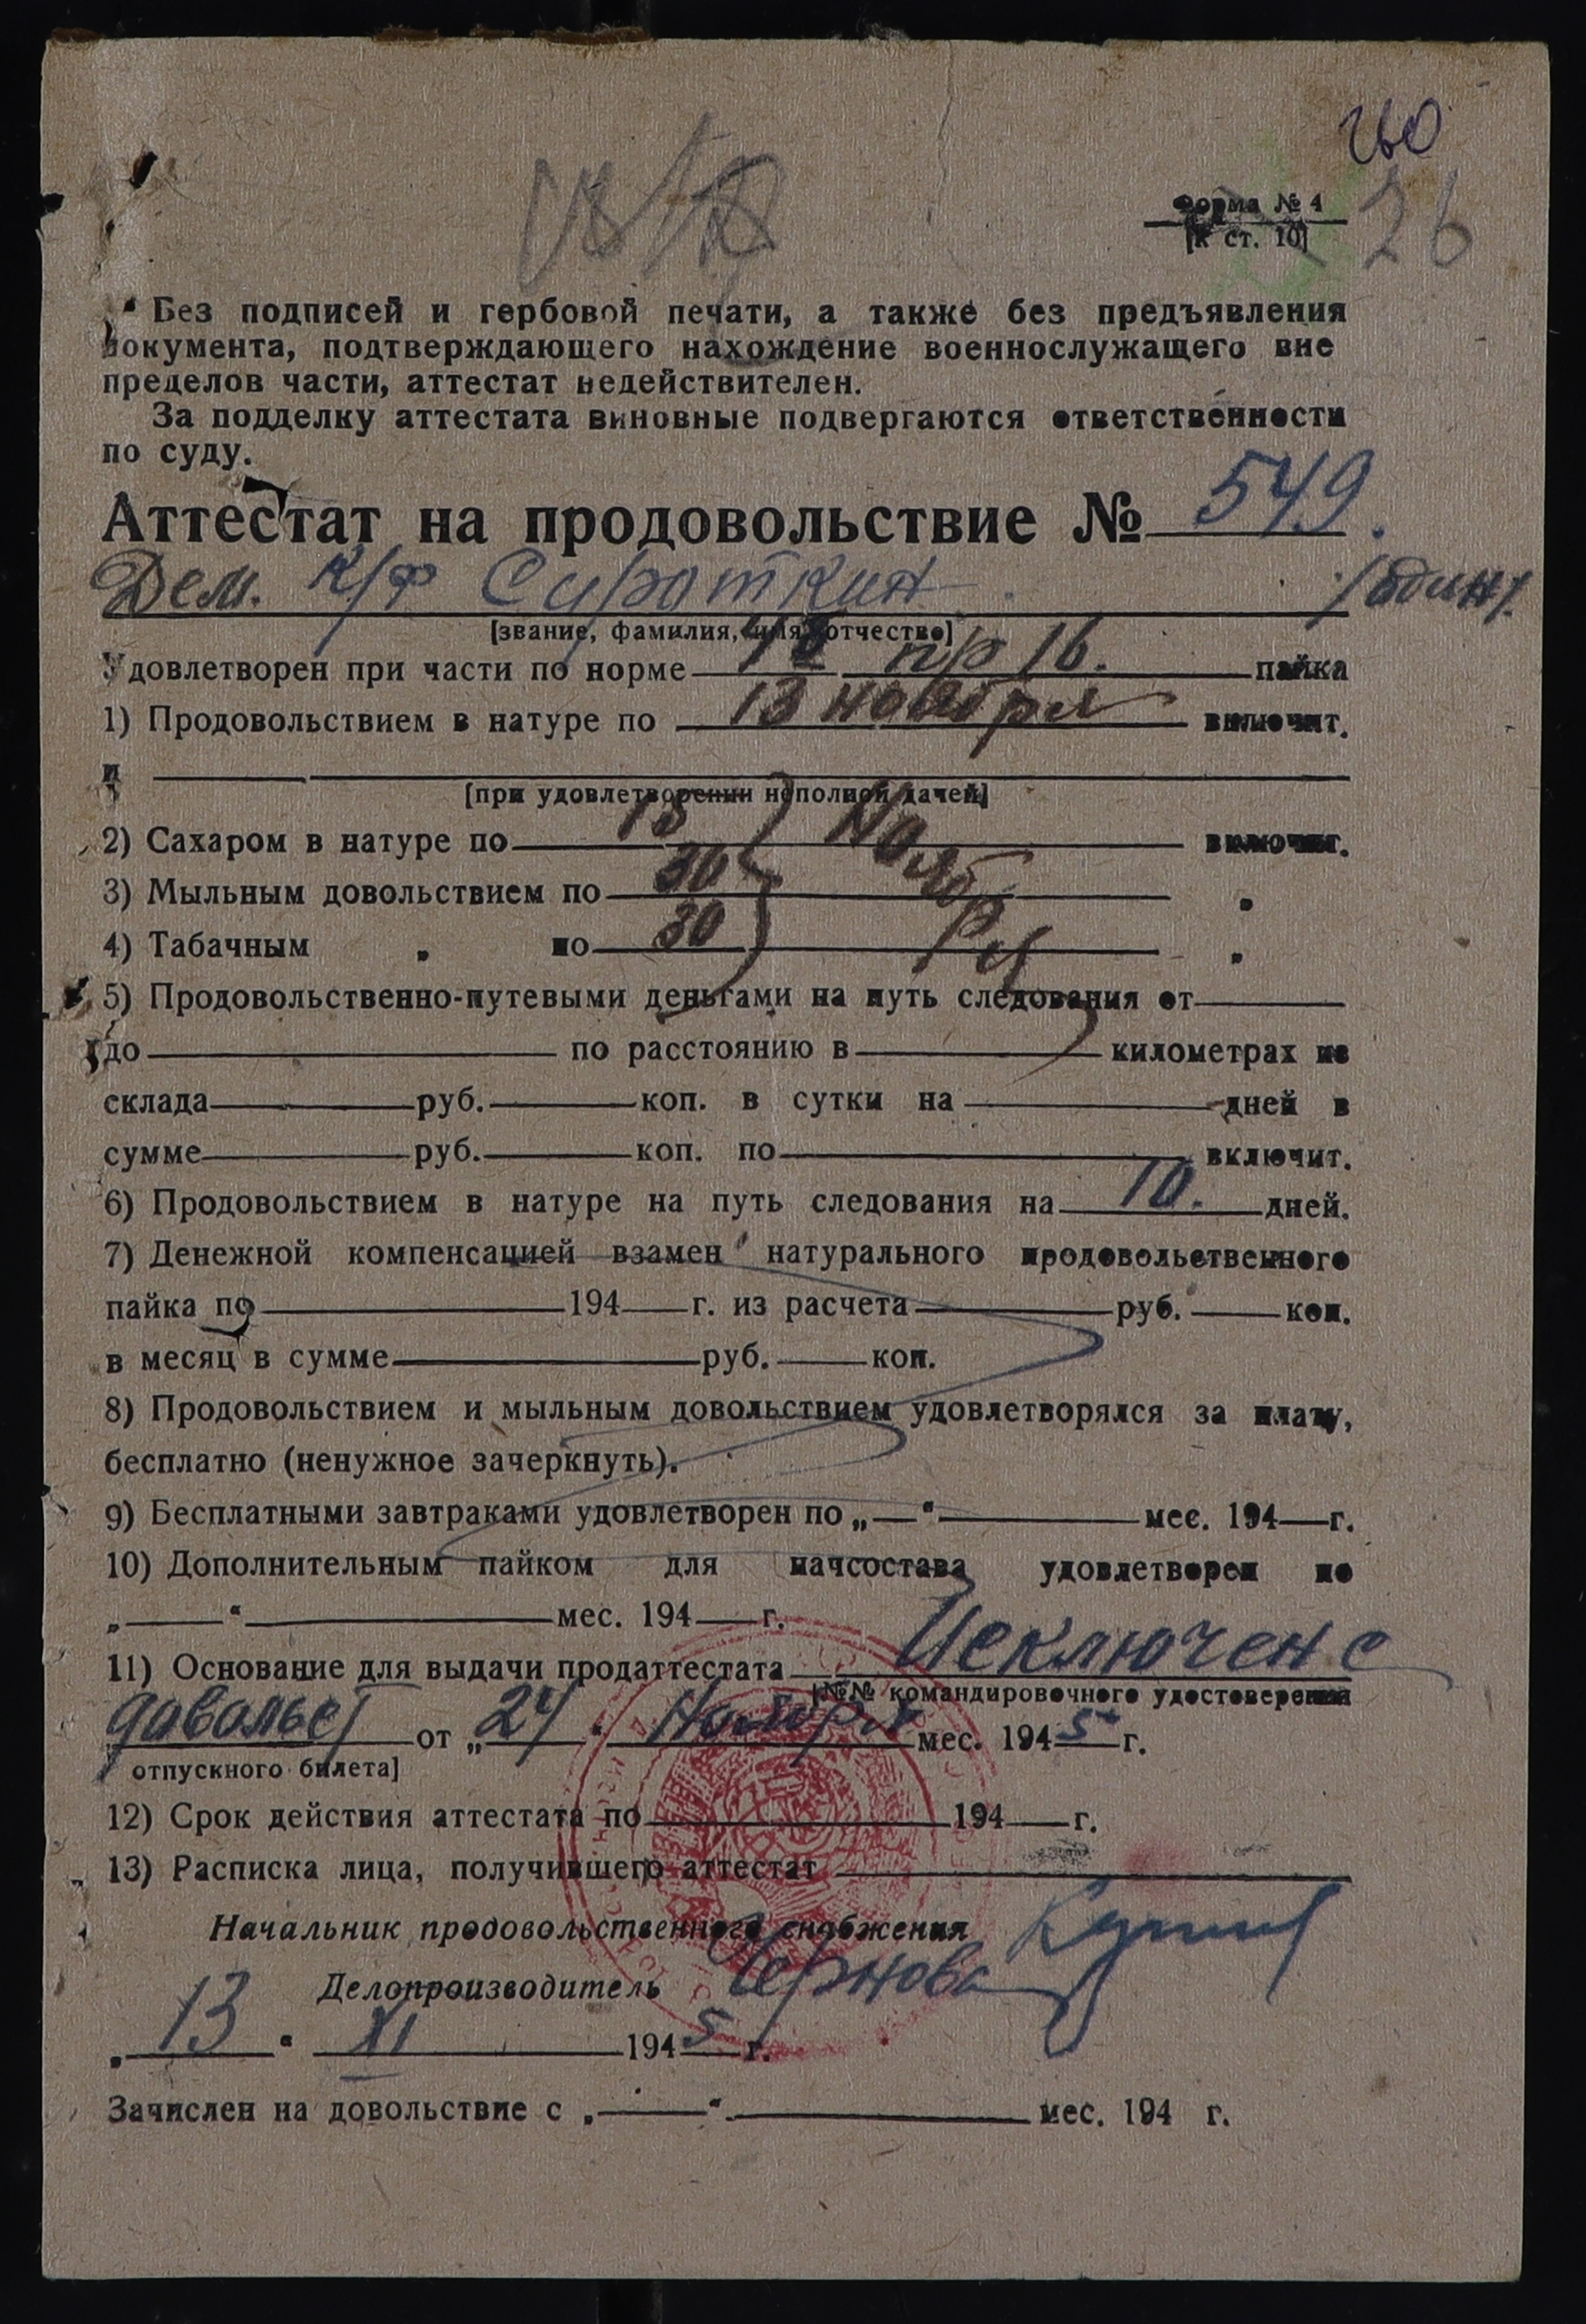 260
26
Форма № 4
[к ст. 10]
Без подписей и гербовой печати, а также без предъявления
документа, подтверждающего нахождение военнослужащего вне
пределов части, аттестат недействителен.
За подделку аттестата виновные подвергаются ответственности
по суду.
Аттестат на продовольствие № 549.
Дем. к/ф Сироткин /один/.
[звание, фамилия, имя, отчество]
Удовлетворен при части по норме пр 16. пайка
1) Продовольствием в натуре по 13 ноября включит.
и
[при удовлетворении неполной дачей]
2) Сахаром в натуре по 13 Ноября включит.
3) Мыльным довольствием по 30 „
4) Табачным „ по 30 „
5) Продовольственно-путевыми деньгами на путь следования от
до по расстоянию в километрах из
склада руб. коп. в сутки на дней в
сумме руб. коп. по включит.
6) Продовольствием в натуре на путь следования на 10. дней.
7) Денежной компенсацией взамен натурального продовольственного
пайка по 194 г. из расчета руб. коп.
в месяц в сумме руб. коп.
8) Продовольствием и мыльным довольствием удовлетворялся за плату,
бесплатно (ненужное зачеркнуть).
9) Бесплатными завтраками удовлетворен по „ “ мес. 194 г.
10) Дополнительным пайком для начсостава удовлетворен по
„ “ мес. 194 г.
11) Основание для выдачи продаттестата Исключен с
[№№ командировочного удостоверения
довольст от „24“ Ноября мес. 1945 г.
отпускного билета]
12) Срок действия аттестата по 194 г.
13) Расписка лица, получившего аттестат
Начальник продовольственного снабжения
Делопроизводитель Чернова
„13“ XI 1945 г.
Зачислен на довольствие с „ “ мес. 194 г.